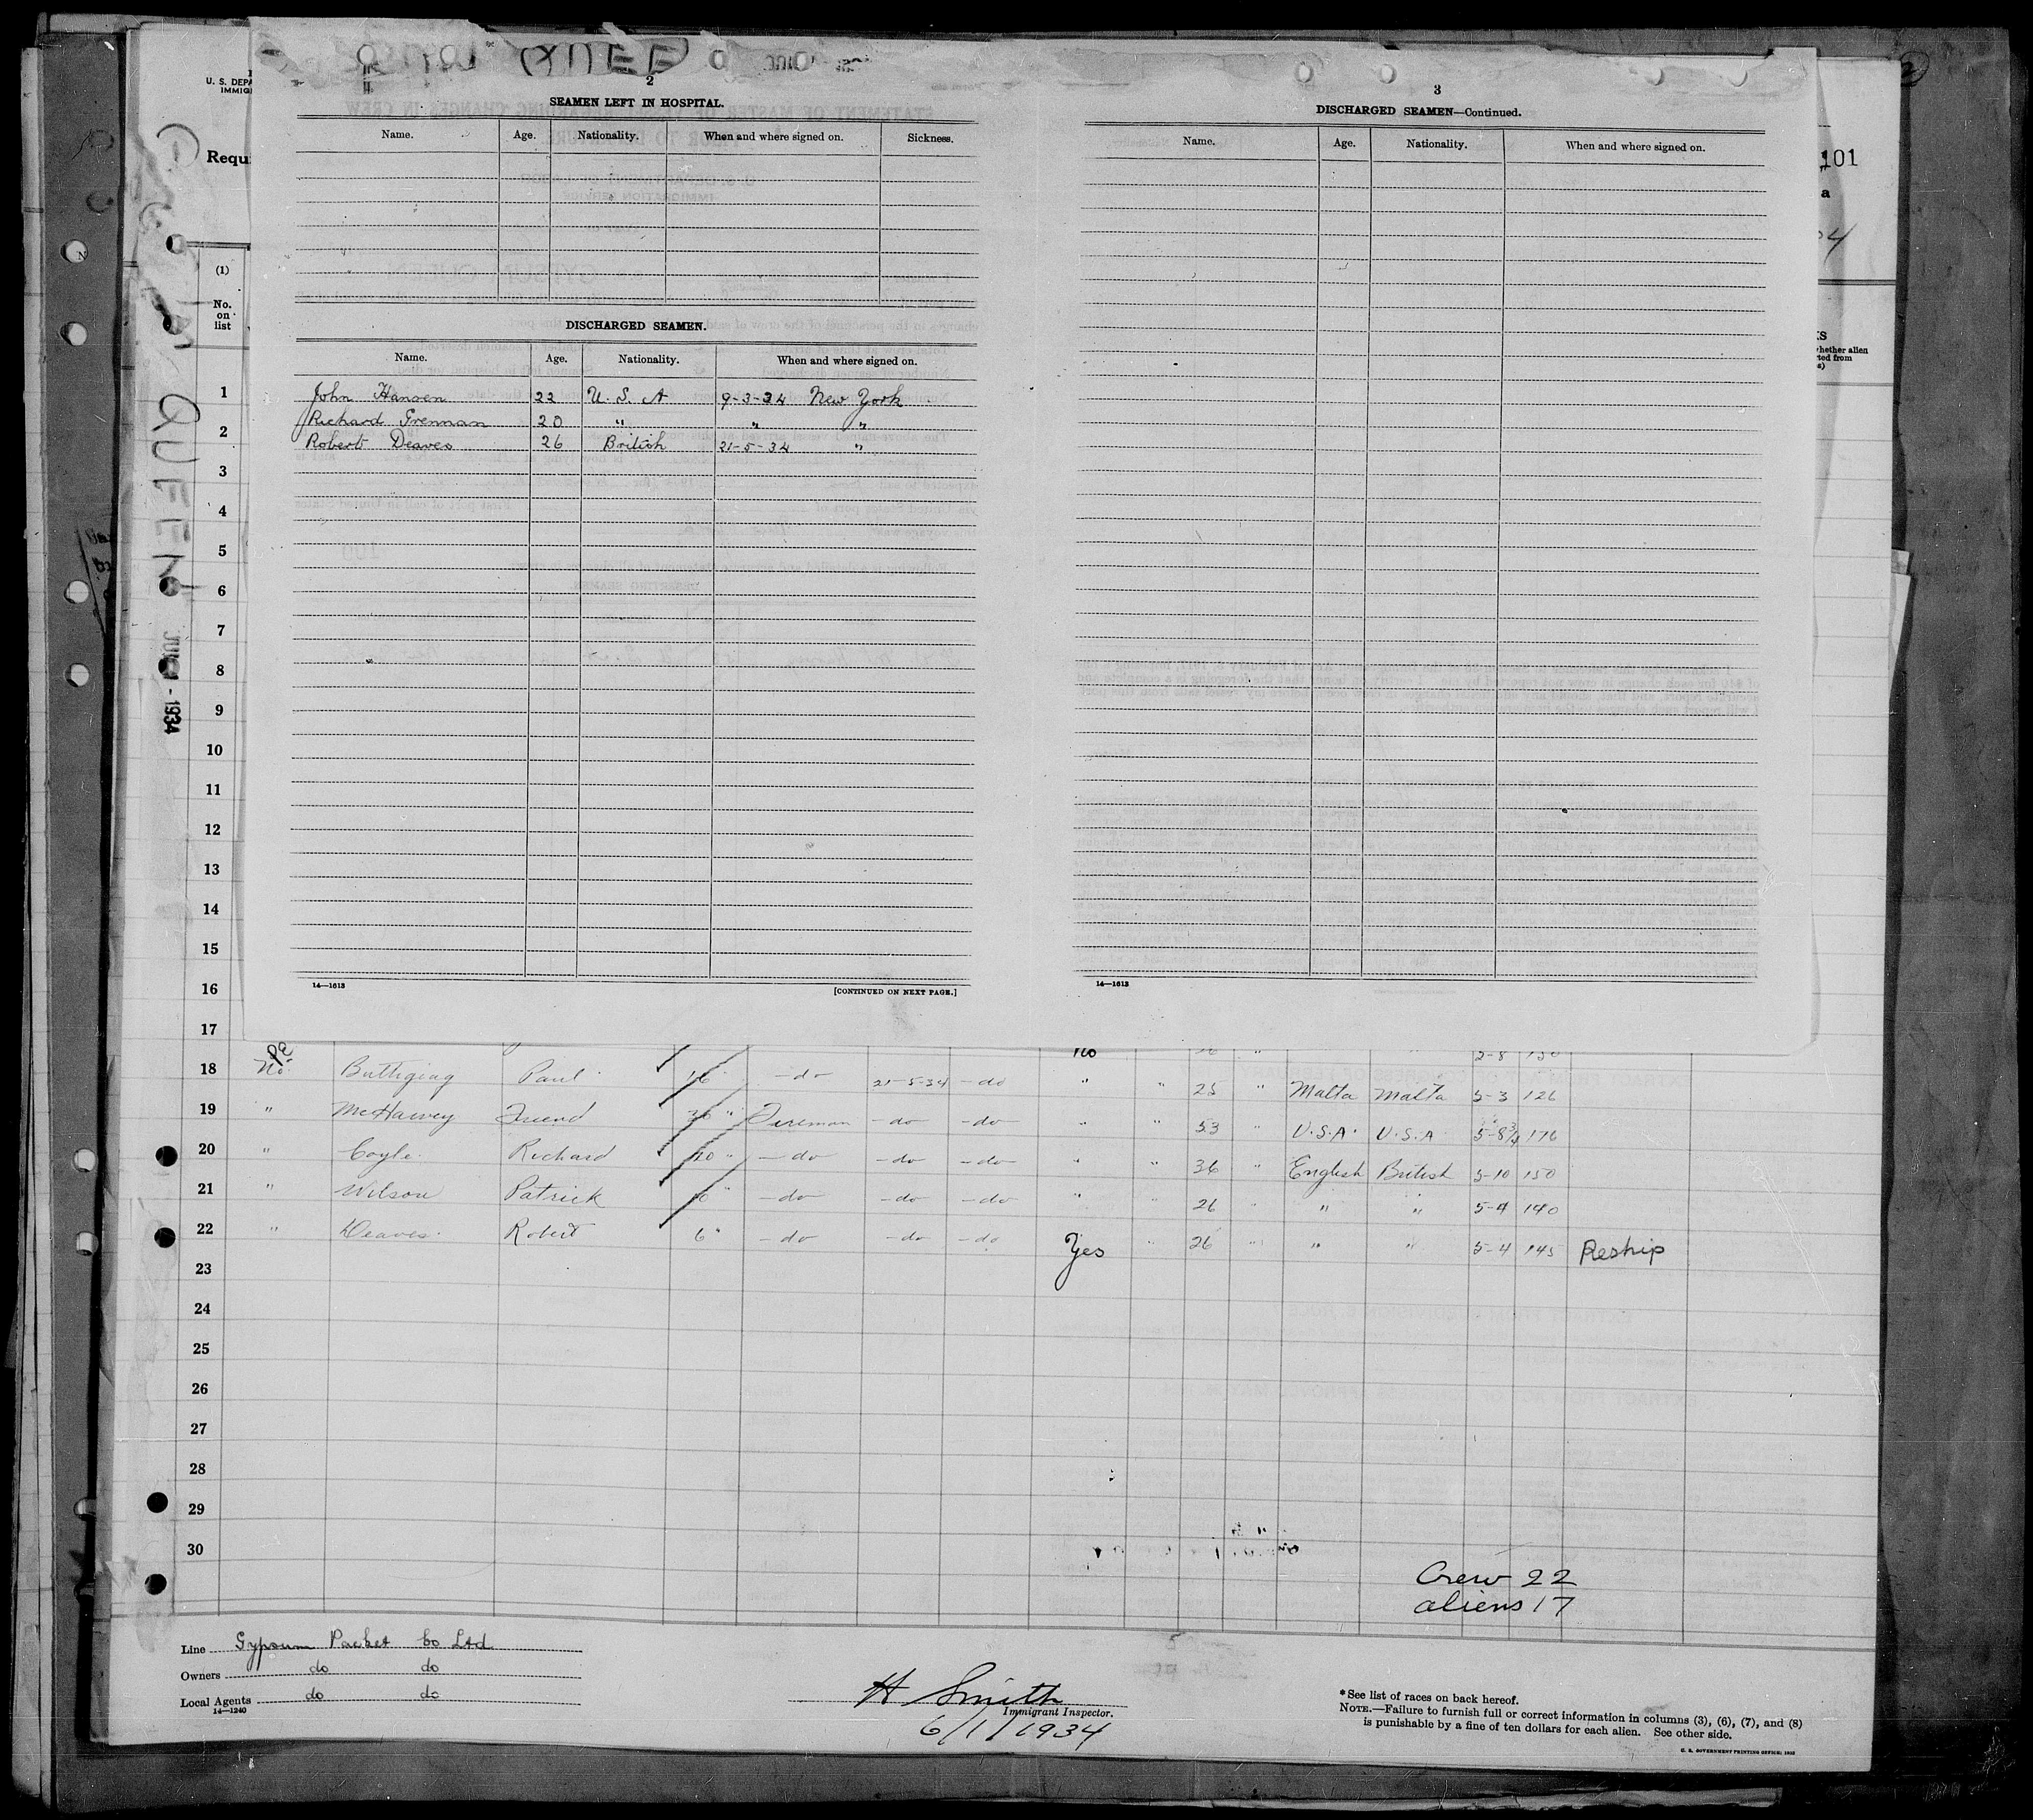 QUEE
2
SEAMEN LEFT IN HOSPITAL.
Name. Age. Nationality. When and where signed on. Sickness.
DISCHARGED SEAMEN.
Name. Age. Nationality. When and where signed on.
John Hansen 22 U.S.A 9-3-34 New York
Richard Grennan 20 " " "
Robert Deaves 26 British 21-5-34 "
14—1613 [CONTINUED ON NEXT PAGE.]
3
DISCHARGED SEAMEN—Continued.
Name. Age. Nationality. When and where signed on.
14—1613
U. S. DEPA
IMMIG
Requi
101
a
(1)
No. on list
QUEEN
1934
1
2
3
4
5
6
7
8
9
10
11
12
13
14
15
16
17
No 5-8 150
18 No Buttigieg Paul 16 -do 21-5-34 -do " " 25 " Malta Malta 5-3 126
19 " McHarvey Friend 36 " Fireman -do- -do- " " 53 " U.S.A. U.S.A 5-8¾ 176
20 " Coyle Richard 20 " -do- -do- -do- " " 36 English British 5-10 150
21 " Wilson Patrick 10 " -do- -do- -do " " 26 " " 5-4 140
22 " Deaves Robert 6 " -do -do- -do Yes " 26 " " " 5-4 145 Reship
23
24
25
26
27
28
29
30
Crew 22
aliens 17
Line Gypsum Packet Co Ltd
Owners do do
Local Agents do do
14—1240
H Smith
Immigrant Inspector.
6/1/1934
*See list of races on back hereof.
NOTE.—Failure to furnish full or correct information in columns (3), (6), (7), and (8)
is punishable by a fine of ten dollars for each alien. See other side.
U. S. GOVERNMENT PRINTING OFFICE: 1933